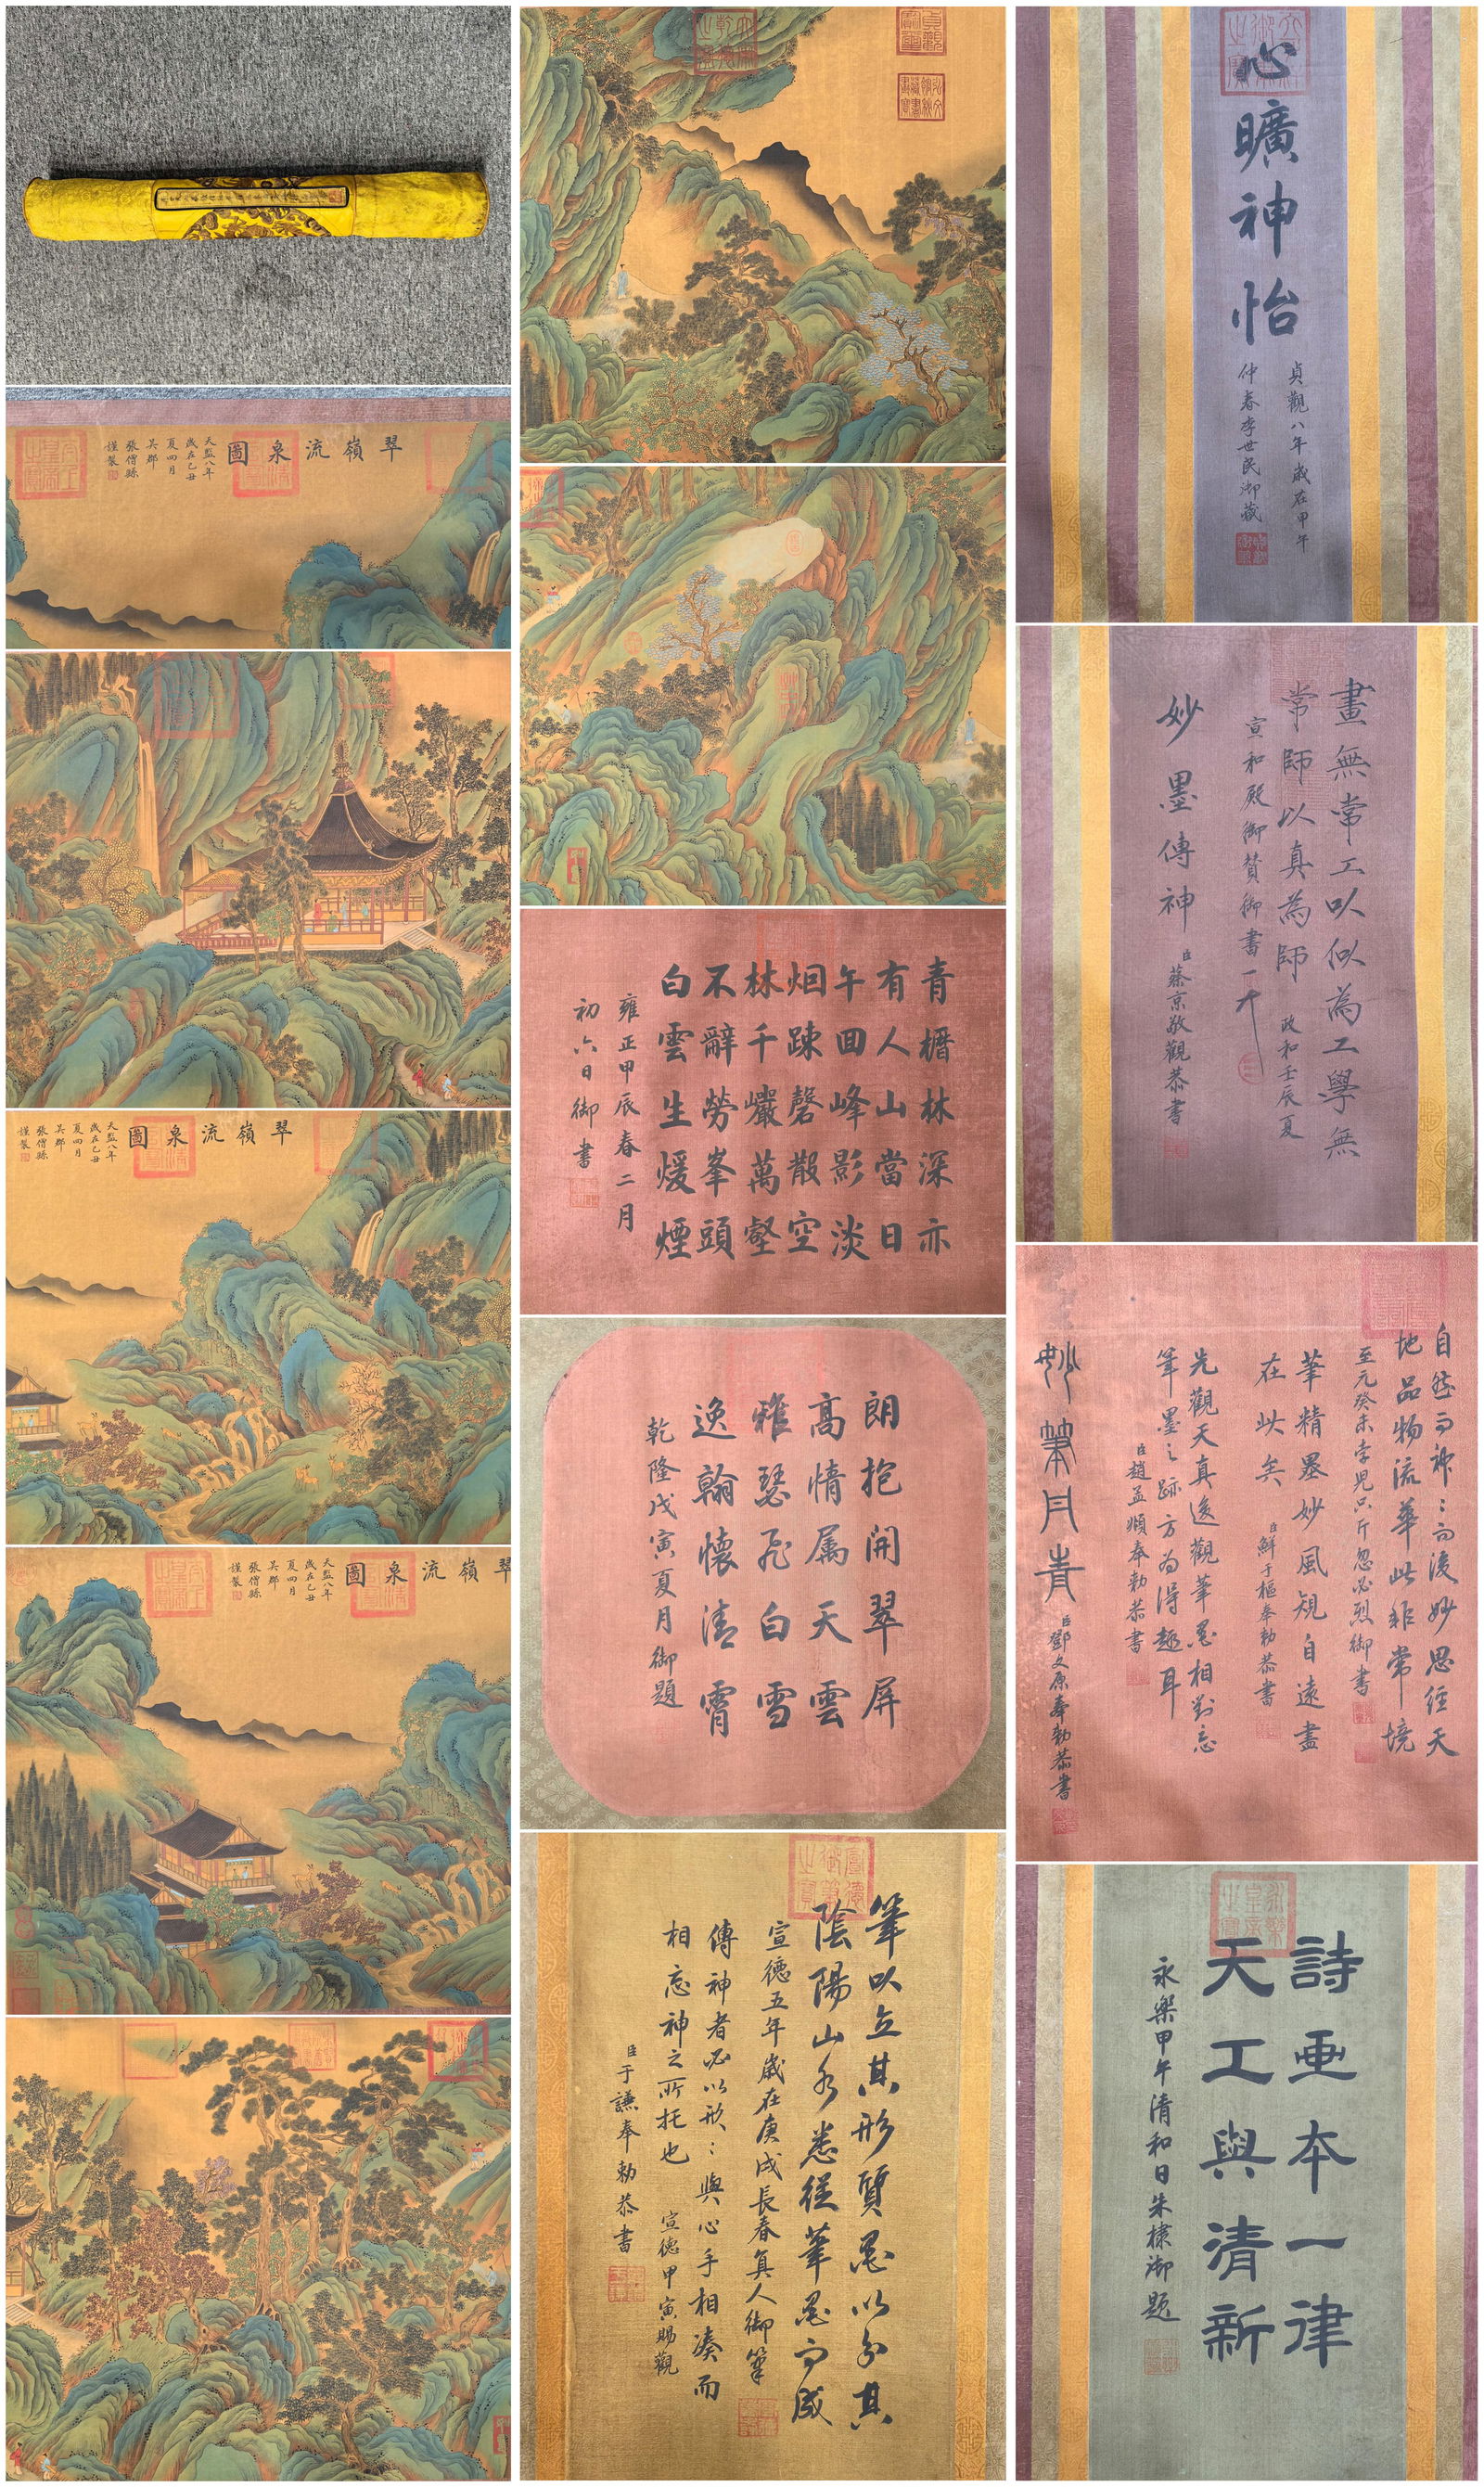 翠嶺流泉圖
天監八年
歲在己丑
夏四月
吳郡
張僧繇
謹製
翠嶺流泉圖
天監八年
歲在己丑
夏四月
吳郡
張僧繇
謹製
翠嶺流泉圖
天監八年
歲在己丑
夏四月
吳郡
張僧繇
謹製
貞觀
青櫓林深亦
有人山當日
午回峰影淡
烟踈磬散空
林千巘萬壑
不辭勞峯頭
白雲生煖煙
雍正甲辰春二月
初六日御書
朗抱開翠屏
高情属天雲
雅瑟飛白雪
逸翰懷清霄
乾隆戊寅夏月御題
筆以立其形質墨以分其
陰陽山水悉從筆墨而成
宣德五年歲在庚戌長春真人御筆
傳神者必以形:與心手相湊而
相忘神之所托也
宣德甲寅賜觀
臣于謙奉勅恭書
心曠神怡
貞觀八年歲在甲午
仲春李世民御藏
畫無常工以似為工學無
常師以真為師
政和壬辰夏
宣和殿御贊御書
妙墨傳神
臣蔡京敬觀恭書
自然而神:而後妙思經天
地品物流華此非常境
至元癸未孛兒只斤忽必烈御書
筆精墨妙風規自遠盡
在此矣
臣鮮于樞奉勅恭書
先觀天真後觀筆墨相對忘
筆墨之跡方為得趣耳
臣趙孟頫奉勅恭書
妙筆丹青
臣鄧文原奉勅恭書
詩画本一律
天工與清新
永樂甲午清和日朱棣御題